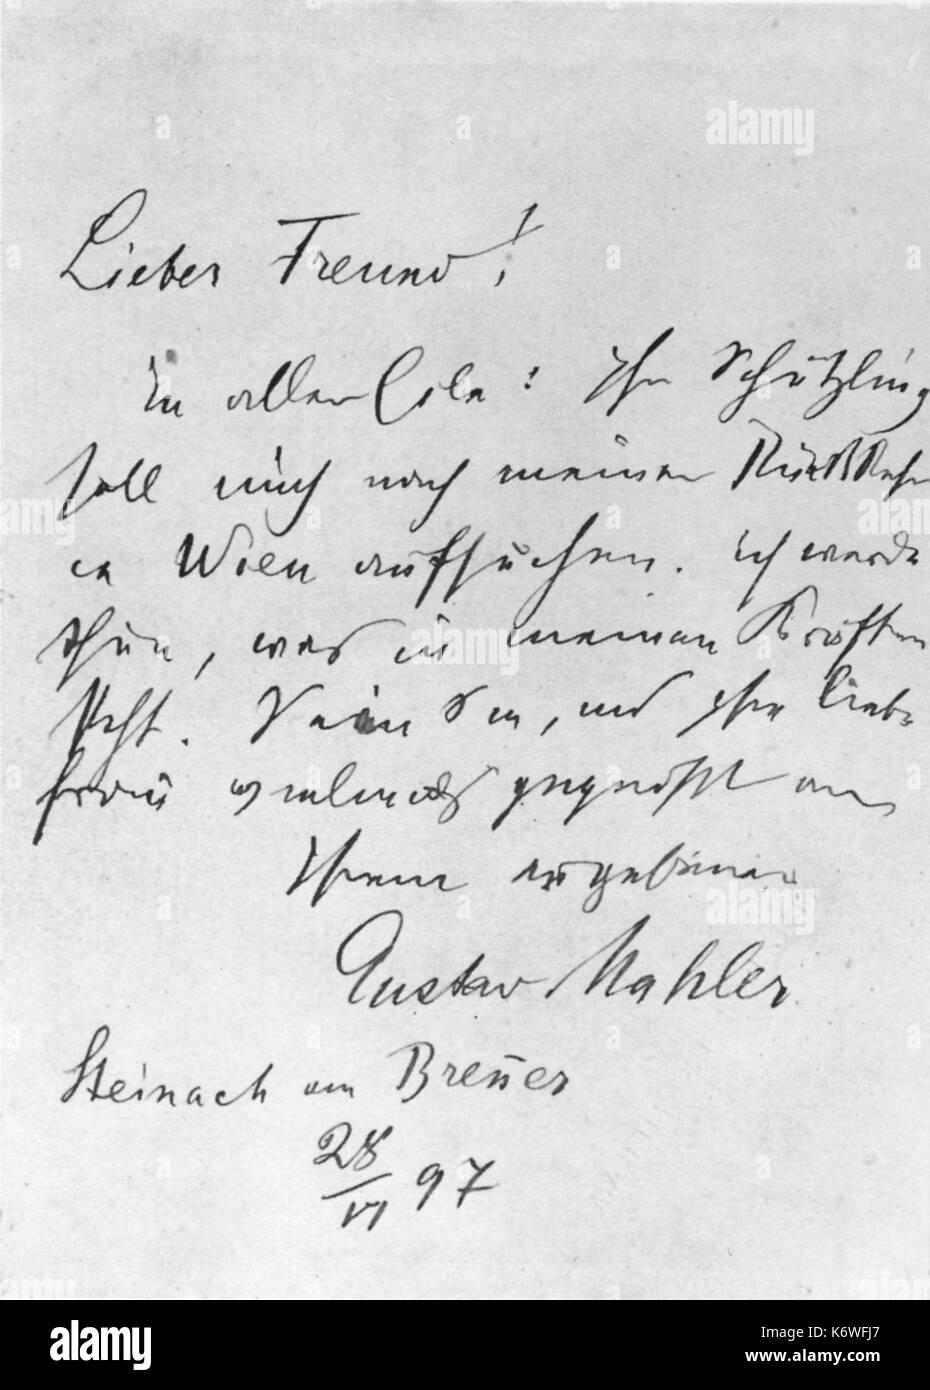 Lieber Freund!
In aller Eile! Ihr Schützling
soll mich nach meiner Rückkehr
in Wien aufsuchen. Ich werde
thun, was in meinen Kräften
steht. Seien Sie, und Ihre liebe
Frau vielmals gegrüßt von
Ihrem ergebenen
Gustav Mahler
Steinach am Breñer
28/VI 97
alamy
Image ID: K6WFJ7
www.alamy.com